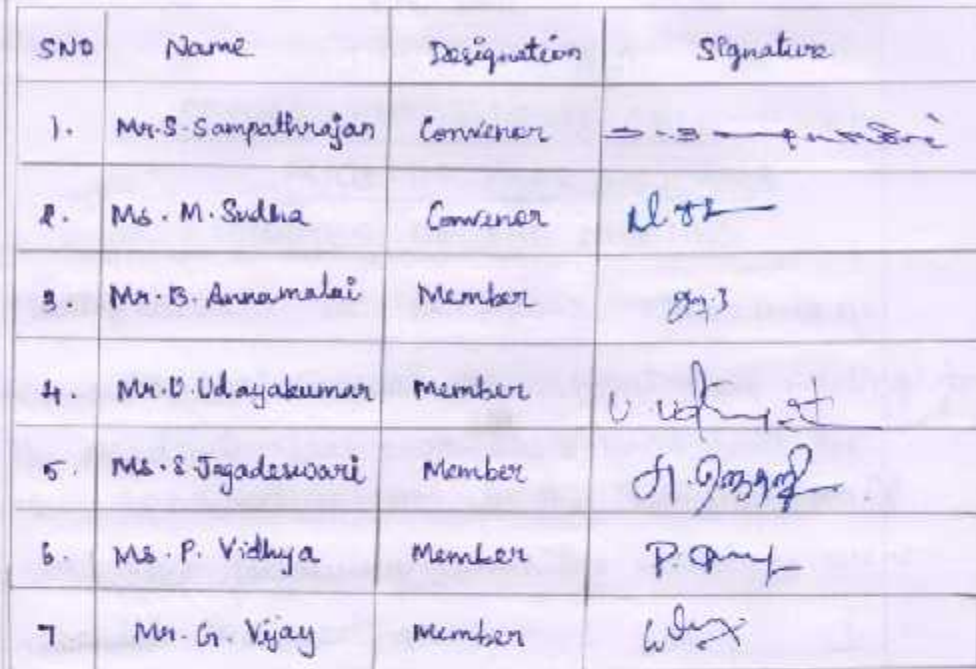 SNO Name Designation Signature
1. Mr. S. Sampathrajan Convenor
2. Ms. M. Sudha Convenor
3. Mr. B. Annamalai Member
4. Mr. V Udayakumar Member
5. Ms. S Jagadeswari Member
6. Ms. P. Vidhya Member
7 Mr. G. Vijay Member